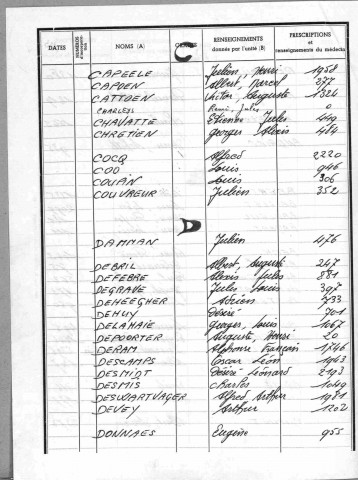 DATES NUMÉROS NOMS (A) GRADES RENSEIGNEMENTS donnés par l'unité (B) PRESCRIPTIONS et renseignements du médecin
C
CAPEELE Julien, Henri 1958
CAPOEN Albert, Marcel 277
CATTOEN Victor, Auguste 1324
CHARLES René, Jules 0
CHAVATTE Etienne Jules 449
CHRETIEN Georges Alexis 484
COCQ Alfred 2220
COO Louis 946
Louis 306
COUVREUR Julien 352
D
DAMMAN Julien 476
DEBRIL Albert, Auguste 247
DEFEBRE Alexis Jules 881
DEGRAVE Jules Louis 397
DEHEEGHER Adrien 233
DEHUY Désiré 701
DELAHAIE Georges, Louis 1067
DEPOORTER Auguste, Henri 20
DERAM Alphonse François 1746
DESCAMPS Oscar Léon 1963
DESMIDT Désiré Léonard 2193
DESMIS Charles 1049
DESWARTVAGER Alfred Arthur 1981
DEVEY Arthur 1202
DONNAES Eugène 955